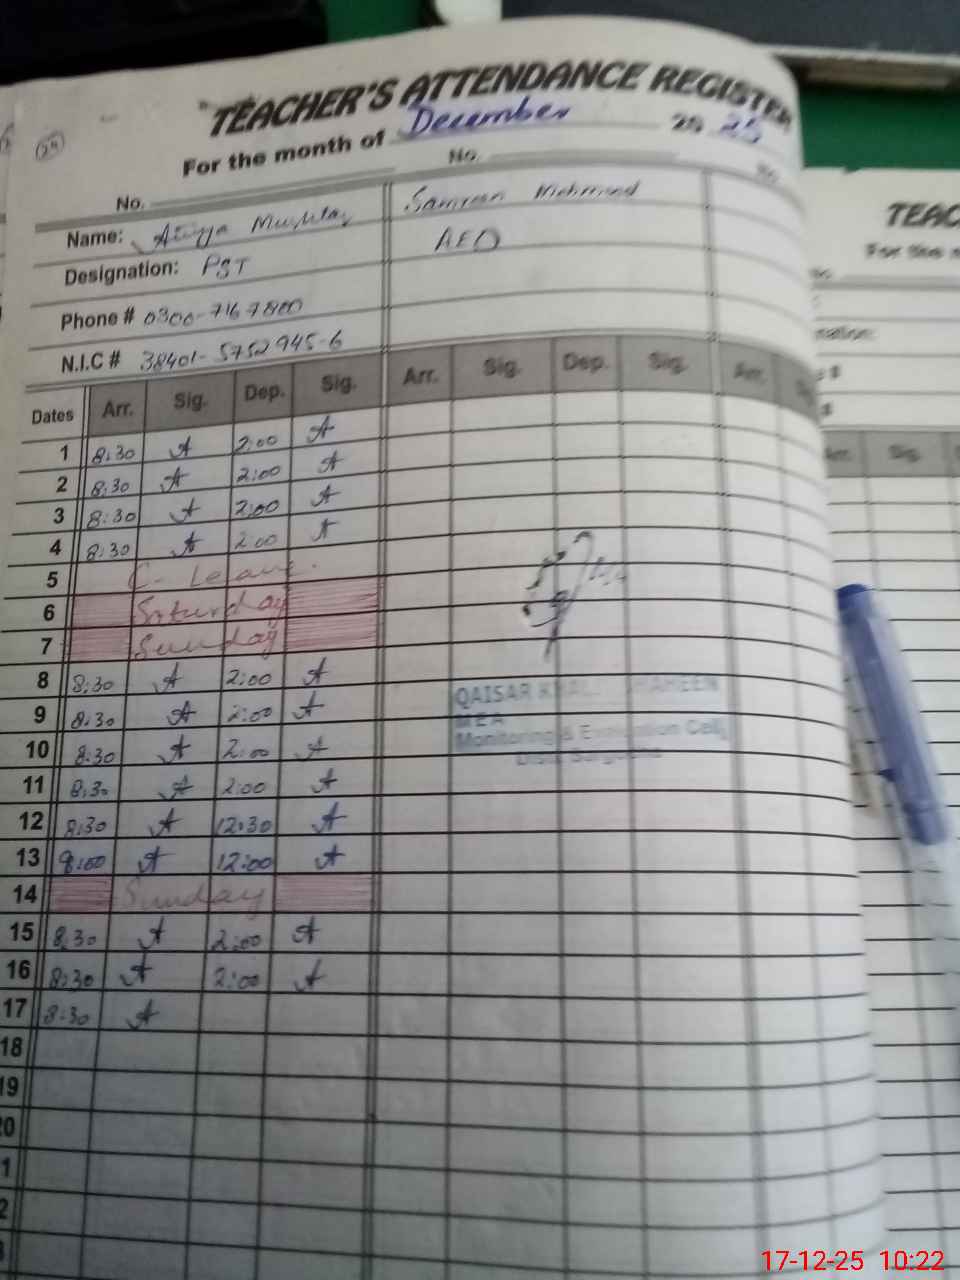 TEACHER'S ATTENDANCE REGISTER
For the month of December 20 25
No. No. No.
Name: Atiyya Samreen
Designation: PST AEO
Phone # 0300-7167800
N.I.C # 38401-5752945-6
Dates Arr. Sig. Dep. Sig. Arr. Sig. Dep. Sig. Arr.
1 8:30 A 2:00 A
2 8:30 A 2:00 A
3 8:30 A 2:00 A
4 8:30 A 2:00 A
5 C- Leave.
6 Saturday
7 Sunday
8 8:30 A 2:00 A
9 8:30 A 2:00 A
10 8:30 A 2:00 A
11 8:30 A 2:00 A
12 8:30 A 12:30 A
13 8:00 A 12:00 A
14 Sunday
15 8:30 A 2:00 A
16 8:30 A 2:00 A
17 8:30 A
18
19
QAISAR SHAHEEN
MEA
Monitoring & Evaluation Cell,
Distt. Sargodha
TEAC
For the
Sig.
17-12-25 10:22